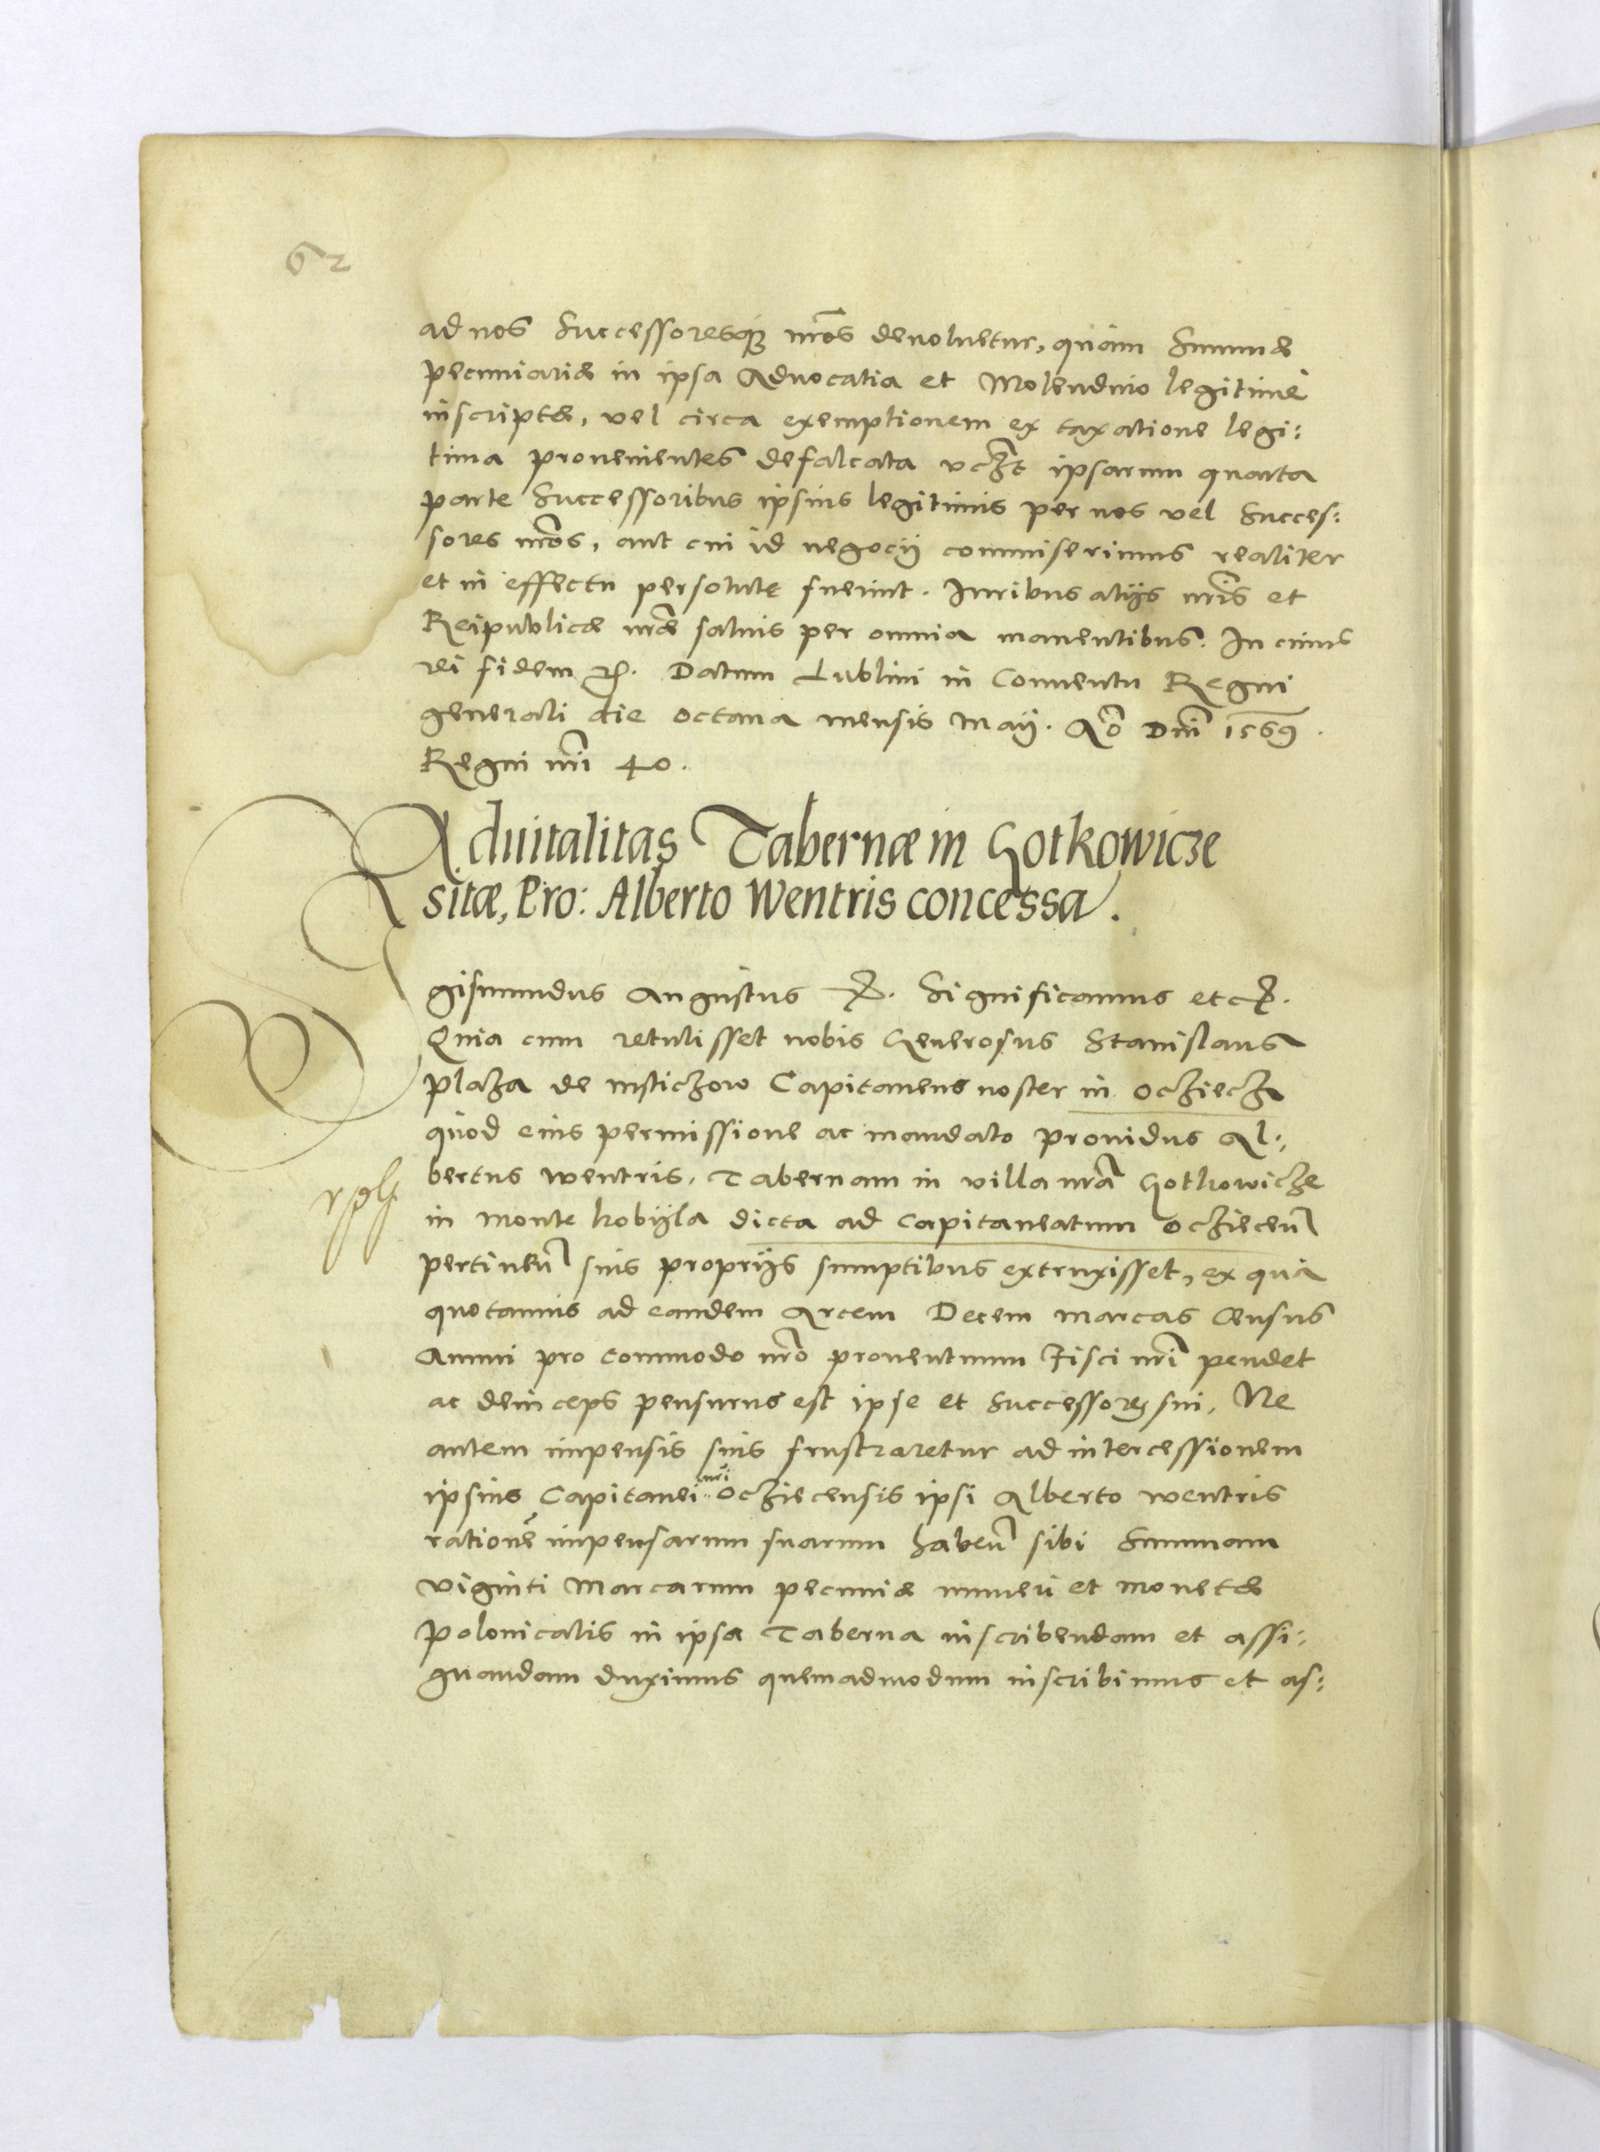 62
ad nos Successoresq; nr̃os devolvetur, quàm Summæ
pecuniariæ in ipsa Advocatia et Molendino legitimè
inscriptæ, vel circa exemptionem ex taxatione legi:
tima provenientes defalcata vcz̃t ipsarum quarta
parte Successoribus ipsius legitimis per nos vel Succes:
sores nr̃os, aut cui id negocij commiserimus realiter
et in effectu persolutę fuerint. Iuribus alijs nr̃is et
Reipublicæ nr̃æ salvis per omnia manentibus. In cuius
rei fidem &c. Datum Lublini in Conventu Regni
generali die octava mensis Maij. Aõ Dnĩ 1569.
Regni nr̃i 40.
Advitalitas Tabernæ in Gotkowicze
sitæ, Pro: Alberto Wentris concessa.
gismundus Augustus &c. Significamus etc.
Quia cum retulisset nobis Generosus Stanislaus
Plaza de Msticzow Capitaneus noster in Ocziecz
quòd eius permissione ac mandato providus Al:
bertus Wentris, Tabernam in villa nr̃a Gotkowicze
in monte Kobijla dicta ad Capitaneatum Ocziecen̄
pertinen̄ suis proprijs sumptibus extruxisset, ex quà
quotannis ad eandem Arcem Decem marcas Census
Annui pro commodo nr̃o proventuum Fisci nr̃i pendet
ac deinceps pensurus est ipse et Successores sui, Ne
autem impensis suis frustraretur ad intercessionem
ipsius Capitanei nr̃i Ocziecensis ipsi Alberto Wentris
rationẽ impensarum suarum haben̄ sibi Summam
viginti Marcarum pecuniæ numeri et monetæ
Polonicalis in ipsa Taberna inscribendam et assi:
gnandam duximus quemadmodum inscribimus et as: